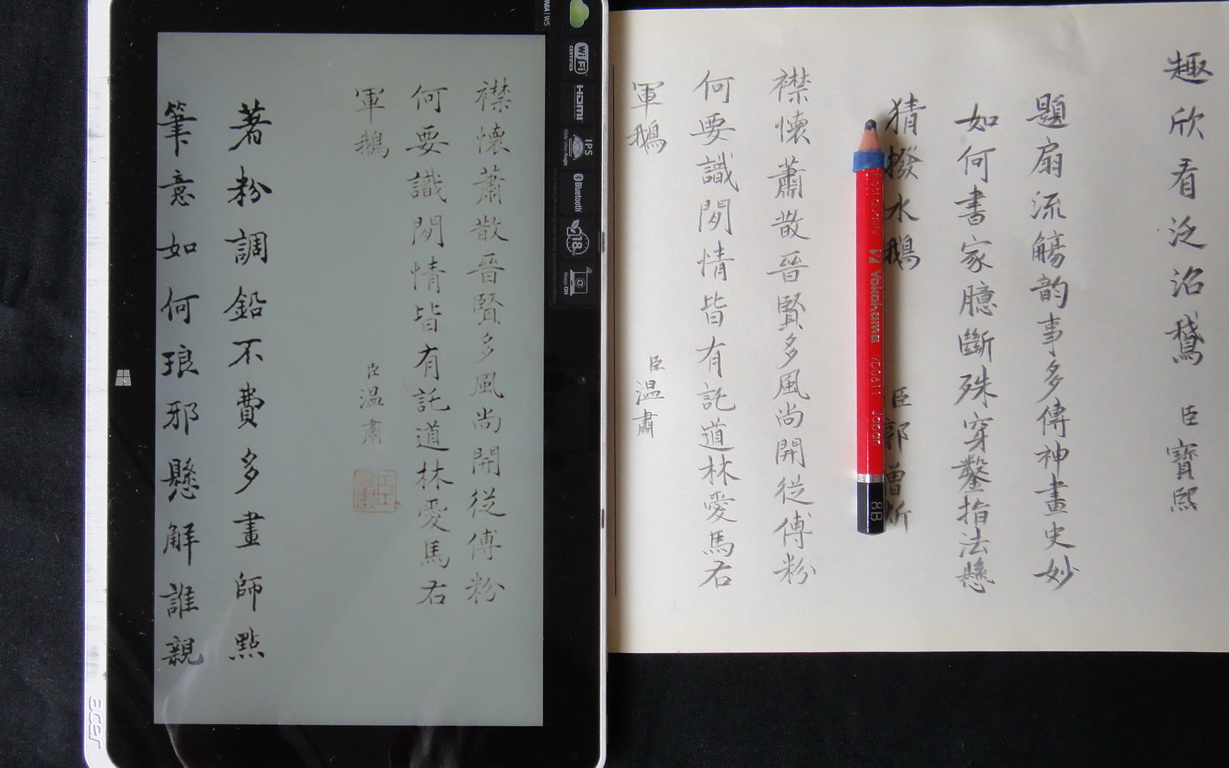 趣欣看泛沼鵞 臣寶熙
題扇流觴韵事多傳神畫史妙
如何書家臆斷殊穿鑿指法懸
猜撥水鵝 臣郭曾炘
襟懷蕭散晉賢多風尚開從傅粉
何要識閒情皆有託道林愛馬右
軍鵝 臣温肅
Yokohama
Japan
8B
襟懷蕭散晉賢多風尚開從傅粉
何要識閒情皆有託道林愛馬右
軍鵝 臣温肅
著粉調鉛不費多畫師點
筆意如何琅邪懸解誰親
WiFi
CERTIFIED
HDMI
IPS
Bluetooth
18
acer